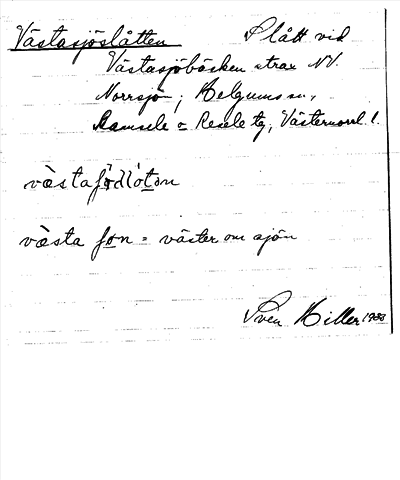 Västasjöslåtten Slått vid
Västasjöbäcken strax NV.
Norrsjö, Helgums sn,
Ramsele o Resele tg, Västernorrl l.
västa = väster om sjön
Sven Hiller